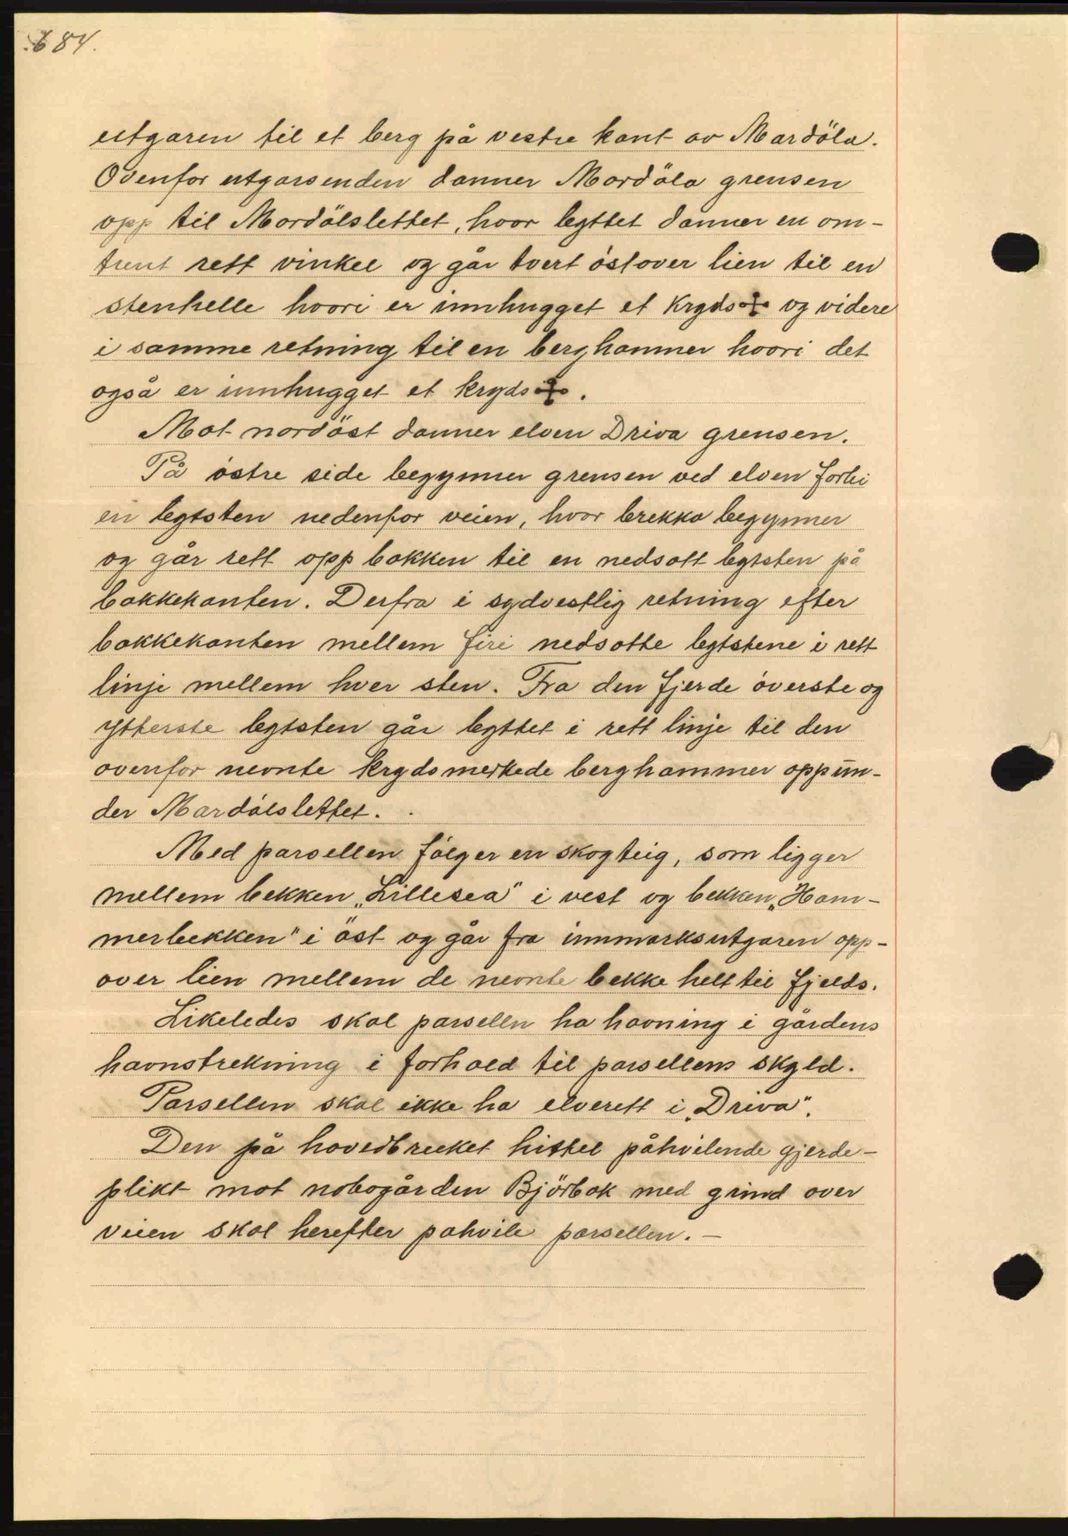 684.
utgaren til et berg på vestre kant av Mardöla.
Ovenfor utgarsenden danner Mardöla grensen
opp til Mardölslettet, hvor byttet danner en om-
trent rett vinkel og går tvert östover lien til en
stenhelle hvori er innhugget et kryds ✢ og videre
i samme retning til en berghammer hvori det
også er innhugget et kryds ✢.
Mot nordöst danner elven Driva grensen.
På östre side begynner grensen ved elven forbi
en bytsten nedenfor veien, hvor brekka begynner
og går rett opp bakken til en nedsatt bytsten på
bakkekanten. Derfra i sydvestlig retning efter
bakkekanten mellem firi nedsatte bytstene i rett
linje mellem hver sten. Fra den fjerde överste og
ytterste bytsten går byttet i rett linje til den
ovenfor nevnte krydsmerkede berghammer oppun-
der Mardölslettet.
Med parsellen fölger en skogteig, som ligger
mellem bekken „Lillesea" i vest og bekken „Ham-
merbekken" i öst og går fra innmarksutgaren opp-
over lien mellem de nevnte bekke helt til fjelds.
Likeledes skal parsellen ha havning i gårdens
havnstrekning i forhold til parsellens skyld.
Parsellen skal ikke ha elverett i „Driva".
Den på hovedbruket hittil påhvilende gjerde-
plikt mot nabogården Björbak med grind over
veien skal herefter påhvile parsellen. —